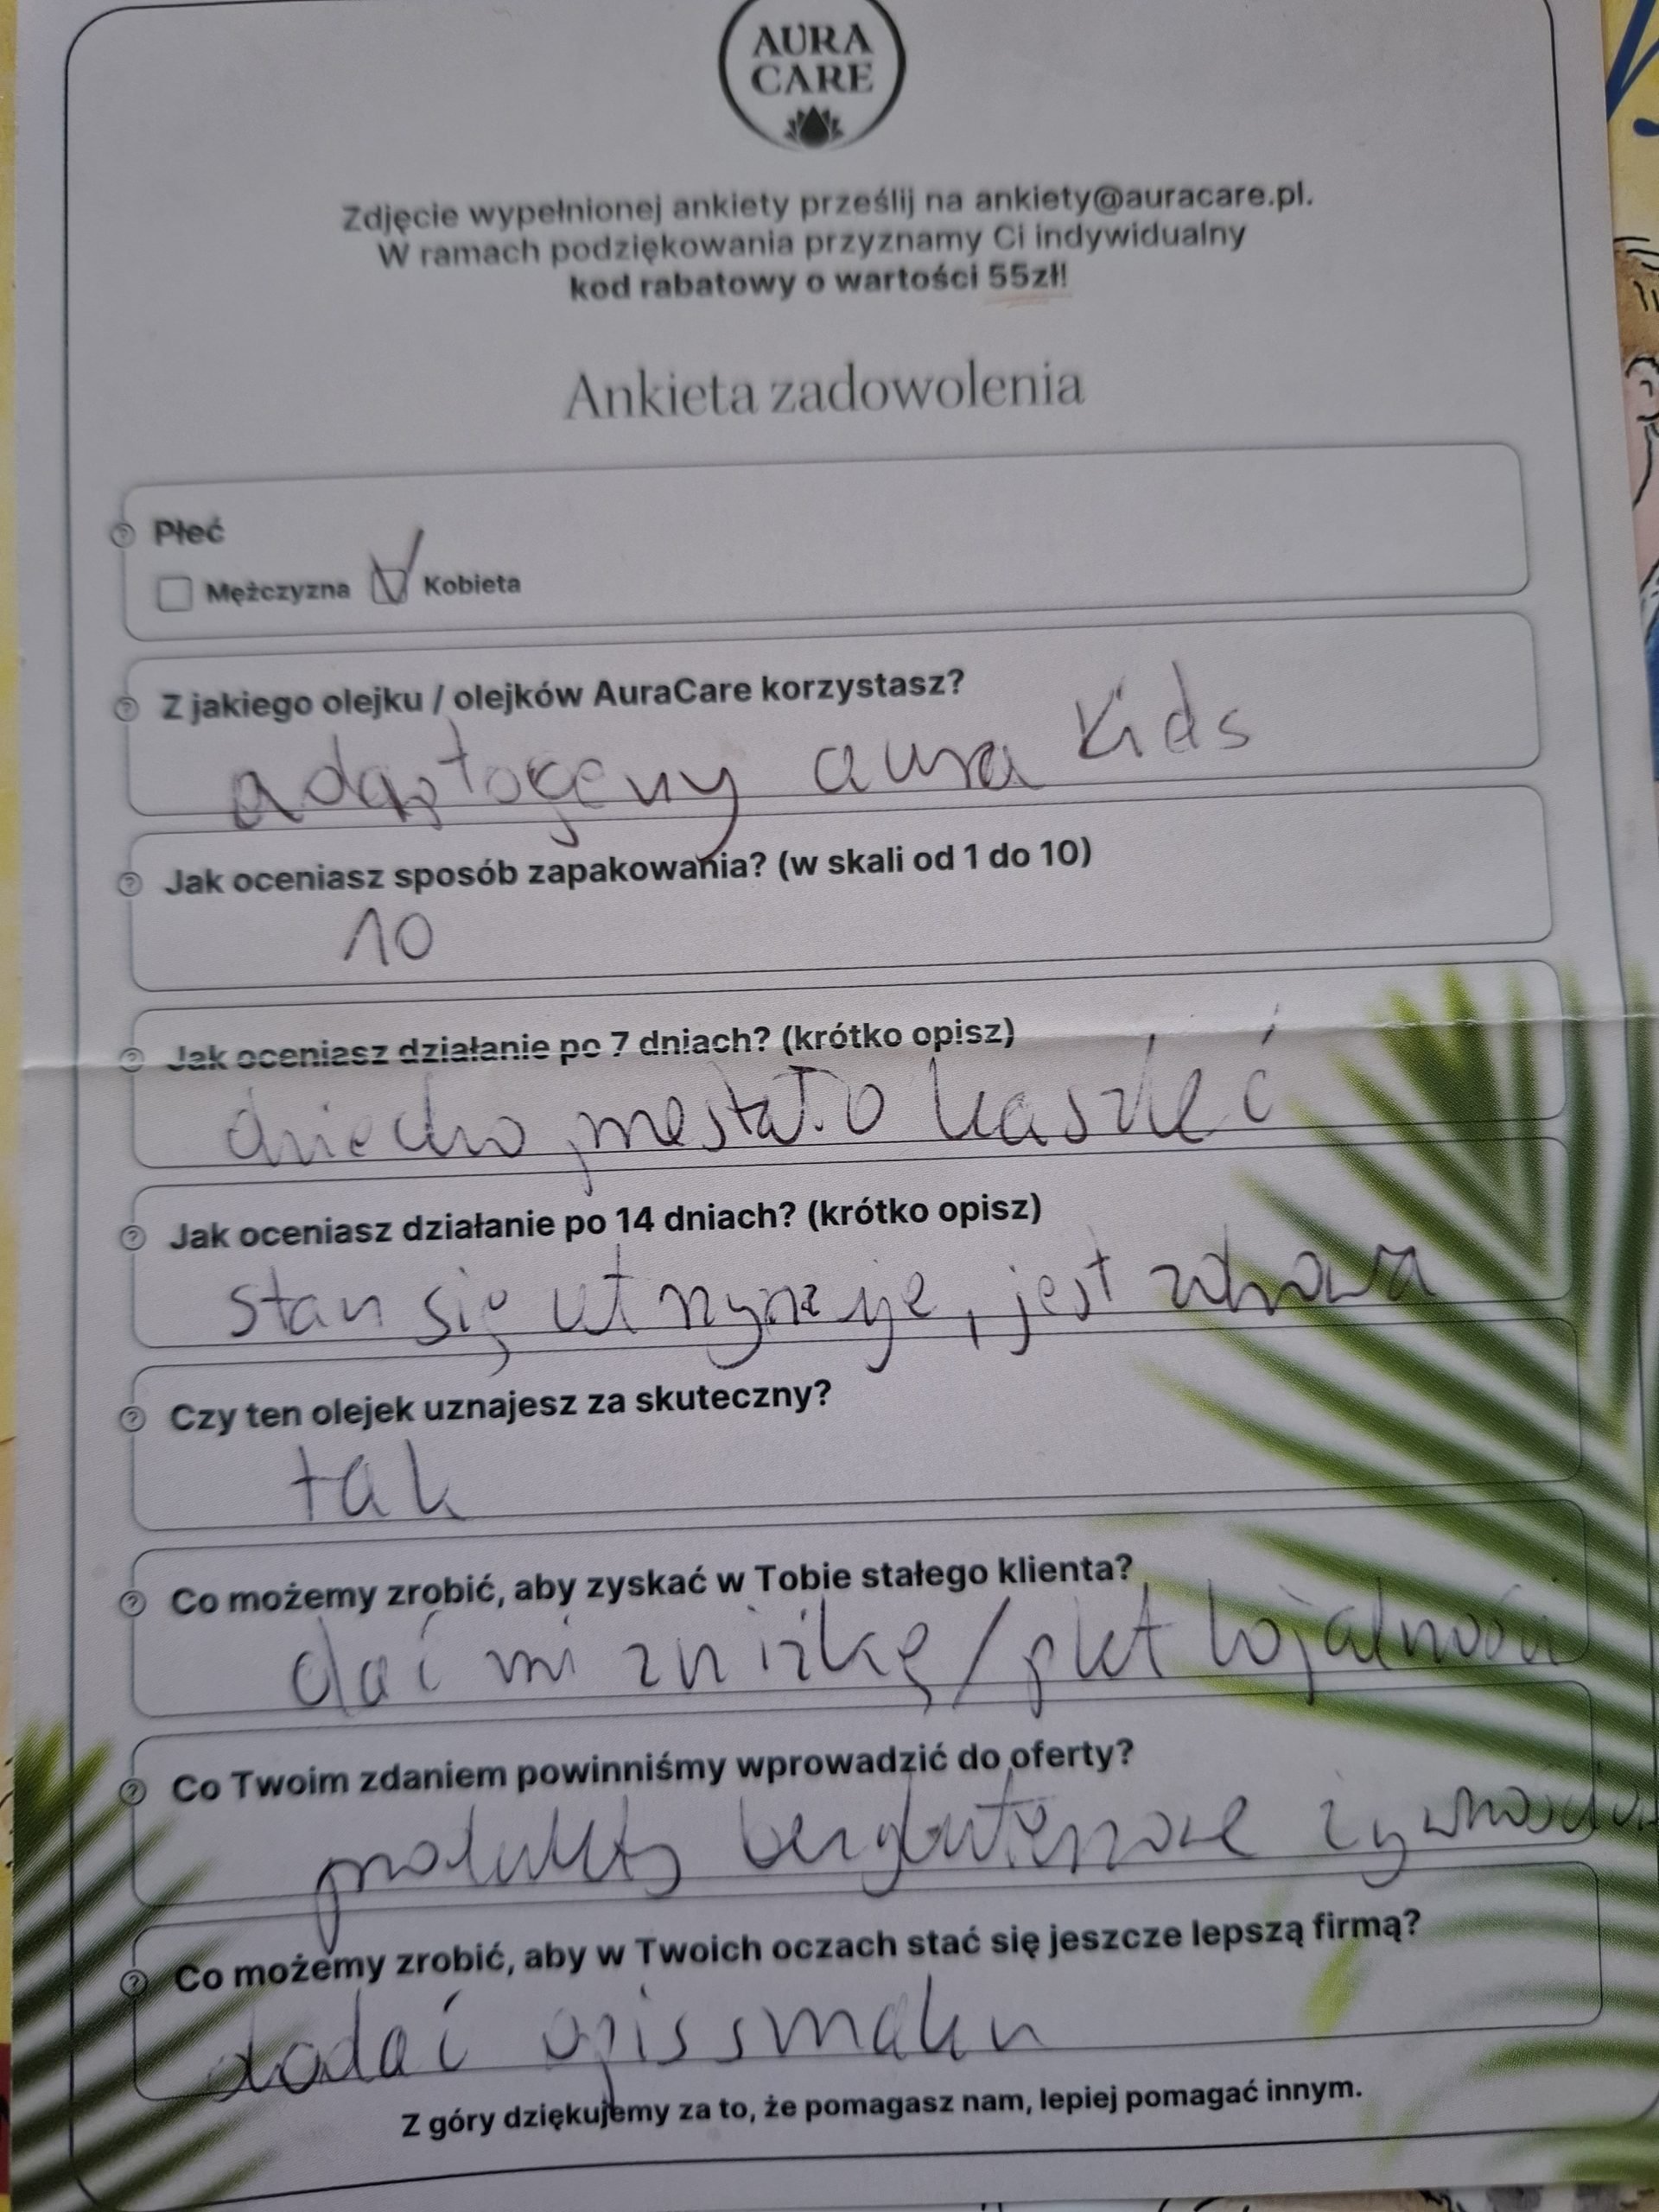 AURA
CARE
Zdjęcie wypełnionej ankiety prześlij na ankiety@auracare.pl.
W ramach podziękowania przyznamy Ci indywidualny
kod rabatowy o wartości 55zł!
Ankieta zadowolenia
Płeć
Mężczyzna Kobieta
Z jakiego olejku / olejków AuraCare korzystasz?
adaptogeny aura Kids
Jak oceniasz sposób zapakowania? (w skali od 1 do 10)
10
Jak oceniasz działanie po 7 dniach? (krótko opisz)
dziecko przestało kaszleć
Jak oceniasz działanie po 14 dniach? (krótko opisz)
stan się utrzymuje, jest zdrowa
Czy ten olejek uznajesz za skuteczny?
tak
Co możemy zrobić, aby zyskać w Tobie stałego klienta?
dać mi zniżkę / pkt lojalności
Co Twoim zdaniem powinniśmy wprowadzić do oferty?
produkty bezglutenowe
Co możemy zrobić, aby w Twoich oczach stać się jeszcze lepszą firmą?
dodać opis smaku
Z góry dziękujemy za to, że pomagasz nam, lepiej pomagać innym.